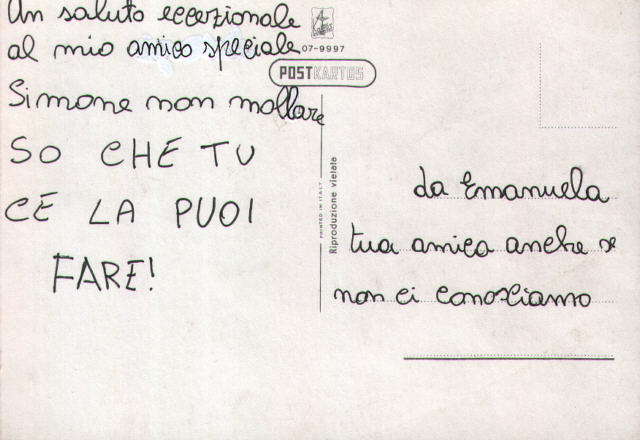 Un saluto eccezionale
al mio amico speciale
Simone non mollare
SO CHE TU
CE LA PUOI
FARE!
07-9997
POSTKARTOS
PRINTED IN ITALY
Riproduzione vietata
da Emanuela
tua amica anche se
non ci conosciamo